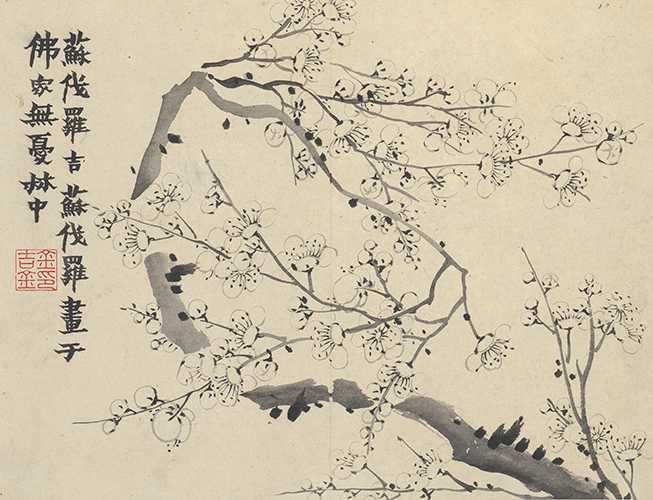 蘇伐羅吉蘇伐羅畫于
佛家無憂林中
金印
吉金